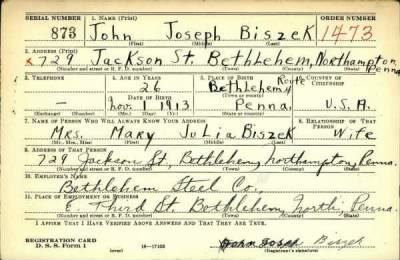 SERIAL NUMBER 1. NAME (Print) ORDER NUMBER
873 John Joseph Biszek 1473
(First) (Middle) (Last)
2. ADDRESS (Print)
x729 Jackson St. Bethlehem, Northampton, Penna.
(Number and street or R. F. D. number) (Town) (County) (State)
3. TELEPHONE 4. AGE IN YEARS 5. PLACE OF BIRTH 6. COUNTRY OF CITIZENSHIP
26 Bethlehem, Route
DATE OF BIRTH (Town or county)
— Nov. 1 1913 Penna. U.S.A.
(Exchange) (Number) (Mo.) (Day) (Yr.) (State or country)
7. NAME OF PERSON WHO WILL ALWAYS KNOW YOUR ADDRESS 8. RELATIONSHIP OF THAT PERSON
Mrs. Mary Julia Biszek Wife
(Mr., Mrs., Miss) (First) (Middle) (Last)
9. ADDRESS OF THAT PERSON
729 Jackson St, Bethlehem, Northampton, Penna.
(Number and street or R. F. D. number) (Town) (County) (State)
10. EMPLOYER'S NAME
Bethlehem Steel Co.,
11. PLACE OF EMPLOYMENT OR BUSINESS
E. Third St. Bethlehem, North. Penna.
(Number and street or R. F. D. number) (Town) (County) (State)
I AFFIRM THAT I HAVE VERIFIED ABOVE ANSWERS AND THAT THEY ARE TRUE.
REGISTRATION CARD
D. S. S. FORM 1 16—17105 John Joseph Biszek